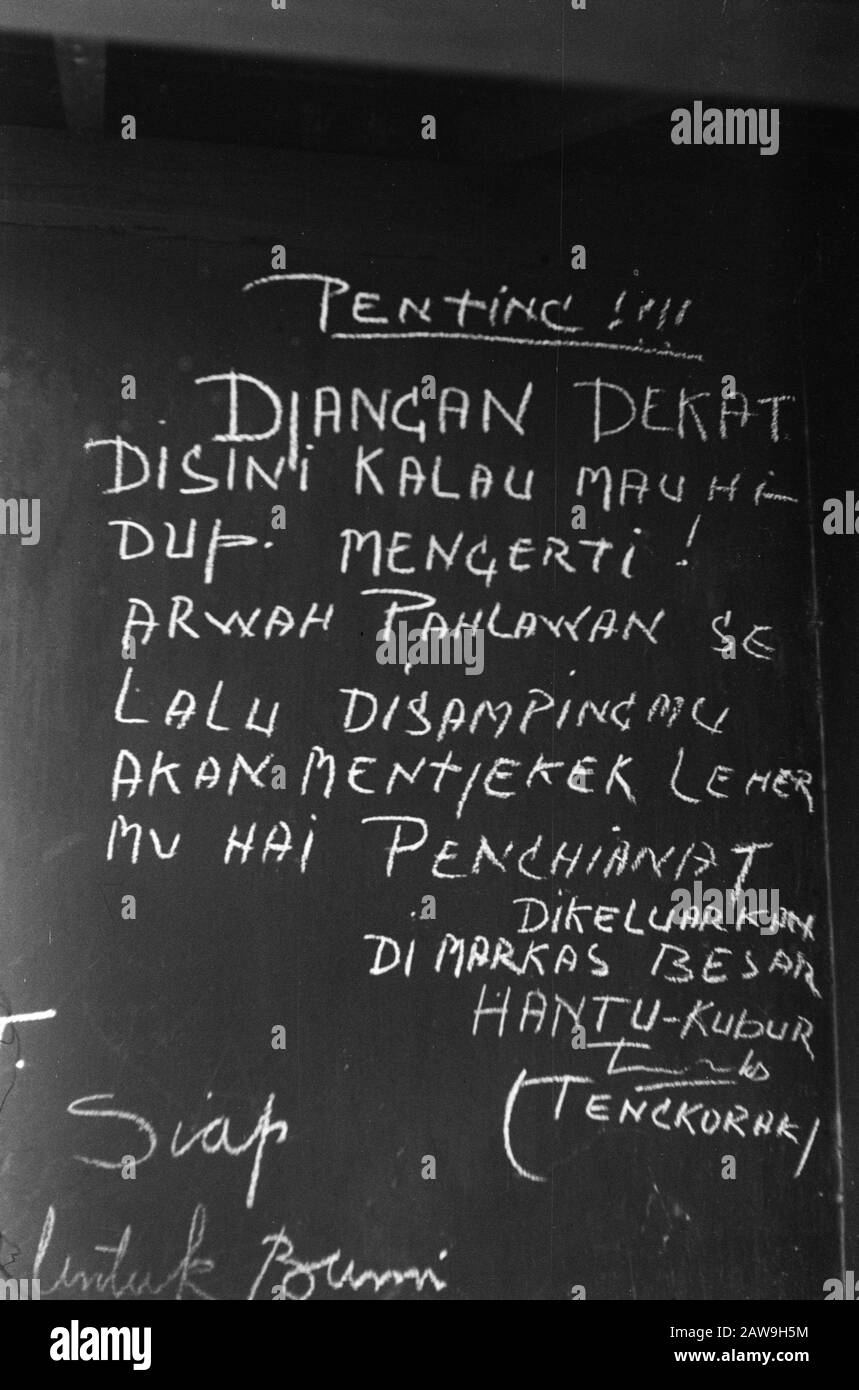 PENTING !!!!!
DJANGAN DEKAT
DISINI KALAU MAU HI-
DUP. MENGERTI !
ARWAH PAHLAWAN SE
LALU DISAMPINGMU
AKAN MENTJEKEK LEHER
MU HAI PENCHIANAT
DIKELUARKAN
DI MARKAS BESAR
HANTU-KUBUR
(TENGKORAK)
Siap
Untuk Bumi
alamy
Image ID: 2AW9H5M
www.alamy.com